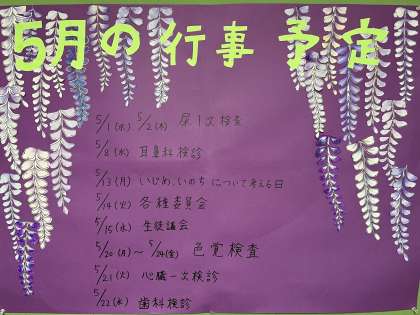 5月の行事予定
5/1(水) 5/2(木) 尿1次検査
5/8(水) 耳鼻科検診
5/13(月) いじめ、いのち について考える日
5/14(火) 各種委員会
5/15(水) 生徒議会
5/20(月)~5/24(金) 色覚検査
5/21(火) 心臓一次検診
5/22(水) 歯科検診